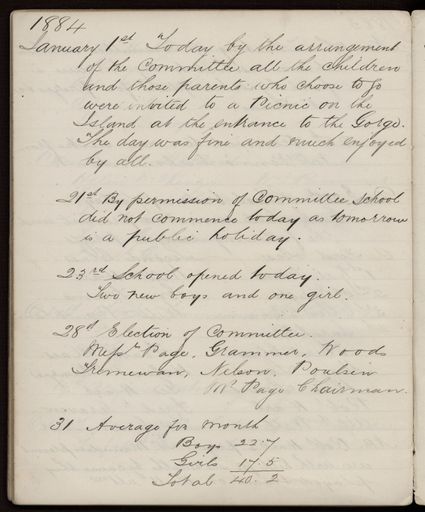 1884
January 1st Today by the arrangement
of the Committee all the children
and those parents who choose to go
were invited to a Picnic on the
Island at the entrance to the Gorge.
The day was fine and much enjoyed
by all.
21st By permission of Committee School
did not commence today as tomorrow
is a public holiday.
23rd School opened today.
Two new boys and one girl.
28d Election of Committee.
Messrs Page, Grammer, Woods
Tremewan, Nelson, Poulsen
Mr Page Chairman.
31 Average for month
Boys 22.7
Girls 17.5
Total 40.2